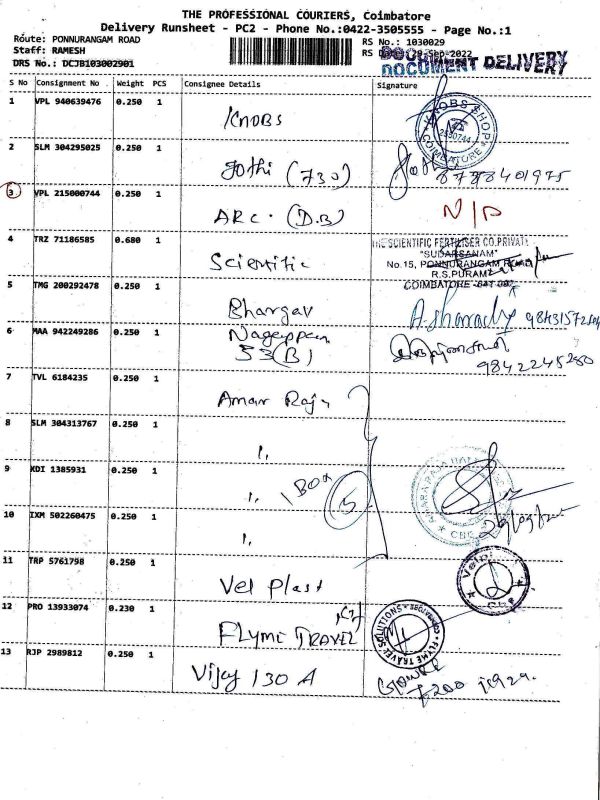 THE PROFESSIONAL COURIERS, Coimbatore
Delivery Runsheet - PC2 - Phone No.:0422-3505555 - Page No.:1
Route: PONNURANGAM ROAD
RS No.: 1030029
Staff: RAMESH
RS Date: 29-Sep-2022
DOCUMENT DELIVERY
DRS No.: DCJB103002901
S No Consignment No Weight PCS Consignee Details Signature
1 VPL 940639476 0.250 1 KNOBS
KNOBS SHOP
COIMBATORE
2 SLM 304295025 0.250 1 Jothi (730)
8778401975
3 VPL 215000744 0.250 1 ARC. (D.B) N/D
4 TRZ 71186585 0.680 1 Scientific
THE SCIENTIFIC FERTILISER CO.PRIVATE
"SUDARSANAM"
No.15, PONNURANGAM ROAD,
R.S.PURAM
COIMBATORE
5 TMG 200292478 0.250 1 Bhargav
6 MAA 942249286 0.250 1 Nagappan
53(B)
9842245280
7 TVL 6184235 0.250 1 Amar Raju
8 SLM 304313767 0.250 1 "
9 KDI 1385931 0.250 1 " 1 Box 5
10 IXM 502260475 0.250 1 "
11 TRP 5761798 0.250 1 Vel Plast
12 PRO 13933074 0.230 1 FLYME TRAVEL
FLYME TRAVEL SOLUTIONS
13 RJP 2989812 0.250 1 Vijay 130 A